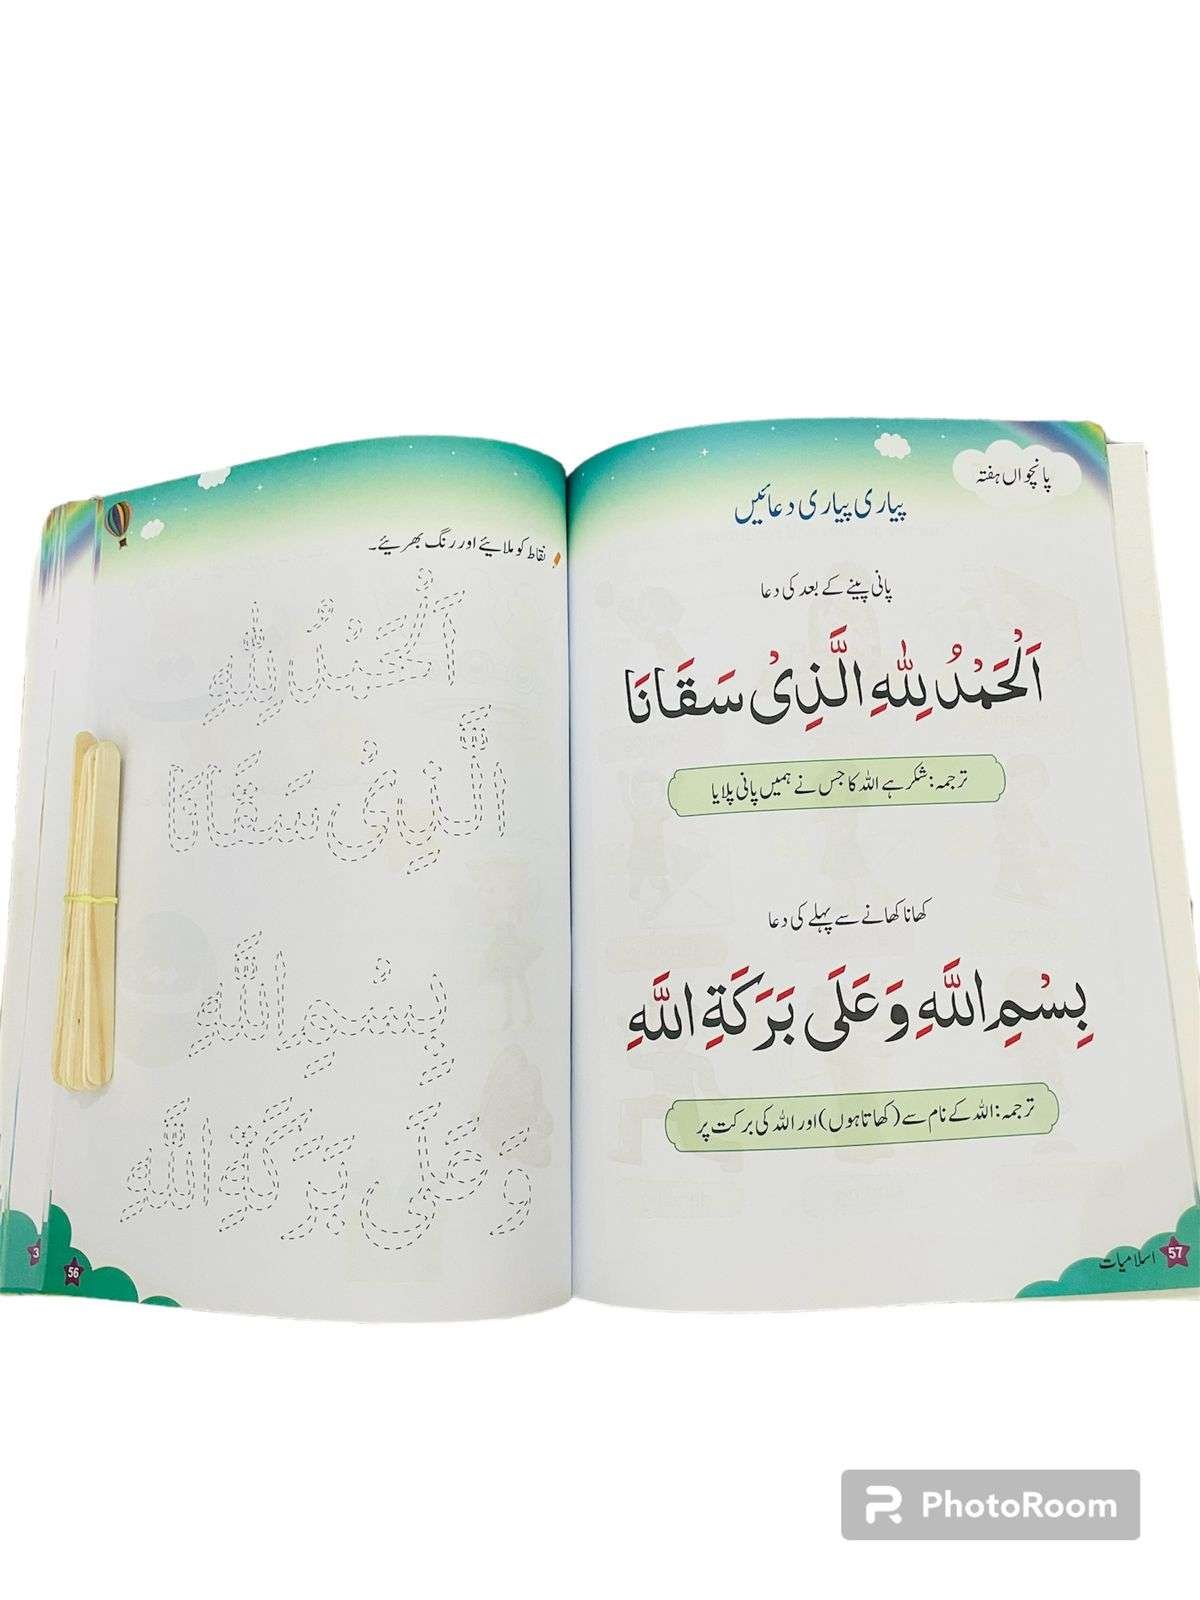 پانچواں ہفتہ
پیاری پیاری دعائیں
پانی پینے کے بعد کی دعا
اَلْحَمْدُ لِلّٰهِ الَّذِیْ سَقَانَا
ترجمہ: شکر ہے اللہ کا جس نے ہمیں پانی پلایا
کھانا کھانے سے پہلے کی دعا
بِسْمِ اللَّهِ وَ عَلَى بَرَكَةِ اللَّهِ
ترجمہ: اللہ کے نام سے (کھاتا ہوں) اور اللہ کی برکت پر
اسلامیات 57
نقاط کو ملائیے اور رنگ بھریئے۔
اَلْحَمْدُ لِلّٰهِ
الَّذِیْ سَقَانَا
بِسْمِ اللَّهِ
وَ عَلَى بَرَكَةِ اللَّهِ
56
3
PhotoRoom